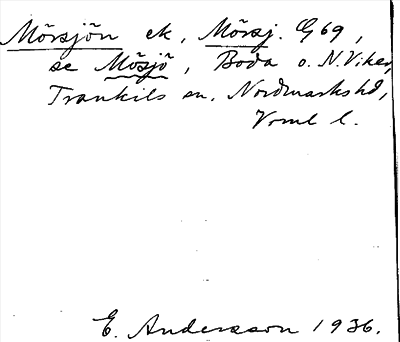 Mörsjön ek, Mörsj. G69,
se Mösjö, Boda o. N. Viker,
Trankils sn, Nordmarks hd,
Vrml l.
E. Andersson 1936.